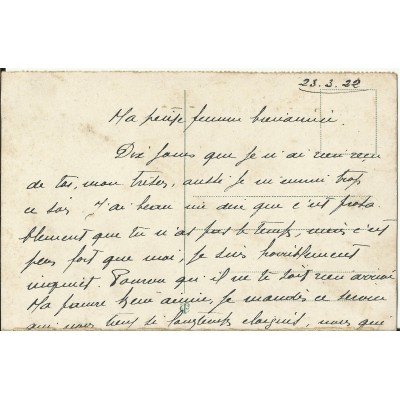 23.3.22
Ma petite femme bien aimée.
Dix jours que je n'ai rien reçu
de toi, mon trésor, aussi je m'ennuie trop
ce soir. J'ai beau me dire que c'est proba
blement que tu n'as pas le temps, mais c'est
plus fort que moi, je suis horriblement
inquiet. Pourvu qu'il ne te soit rien arrivé
Ma pauvre bien aimée, je maudis ce service
qui nous tient si longtemps éloignés, nous qui